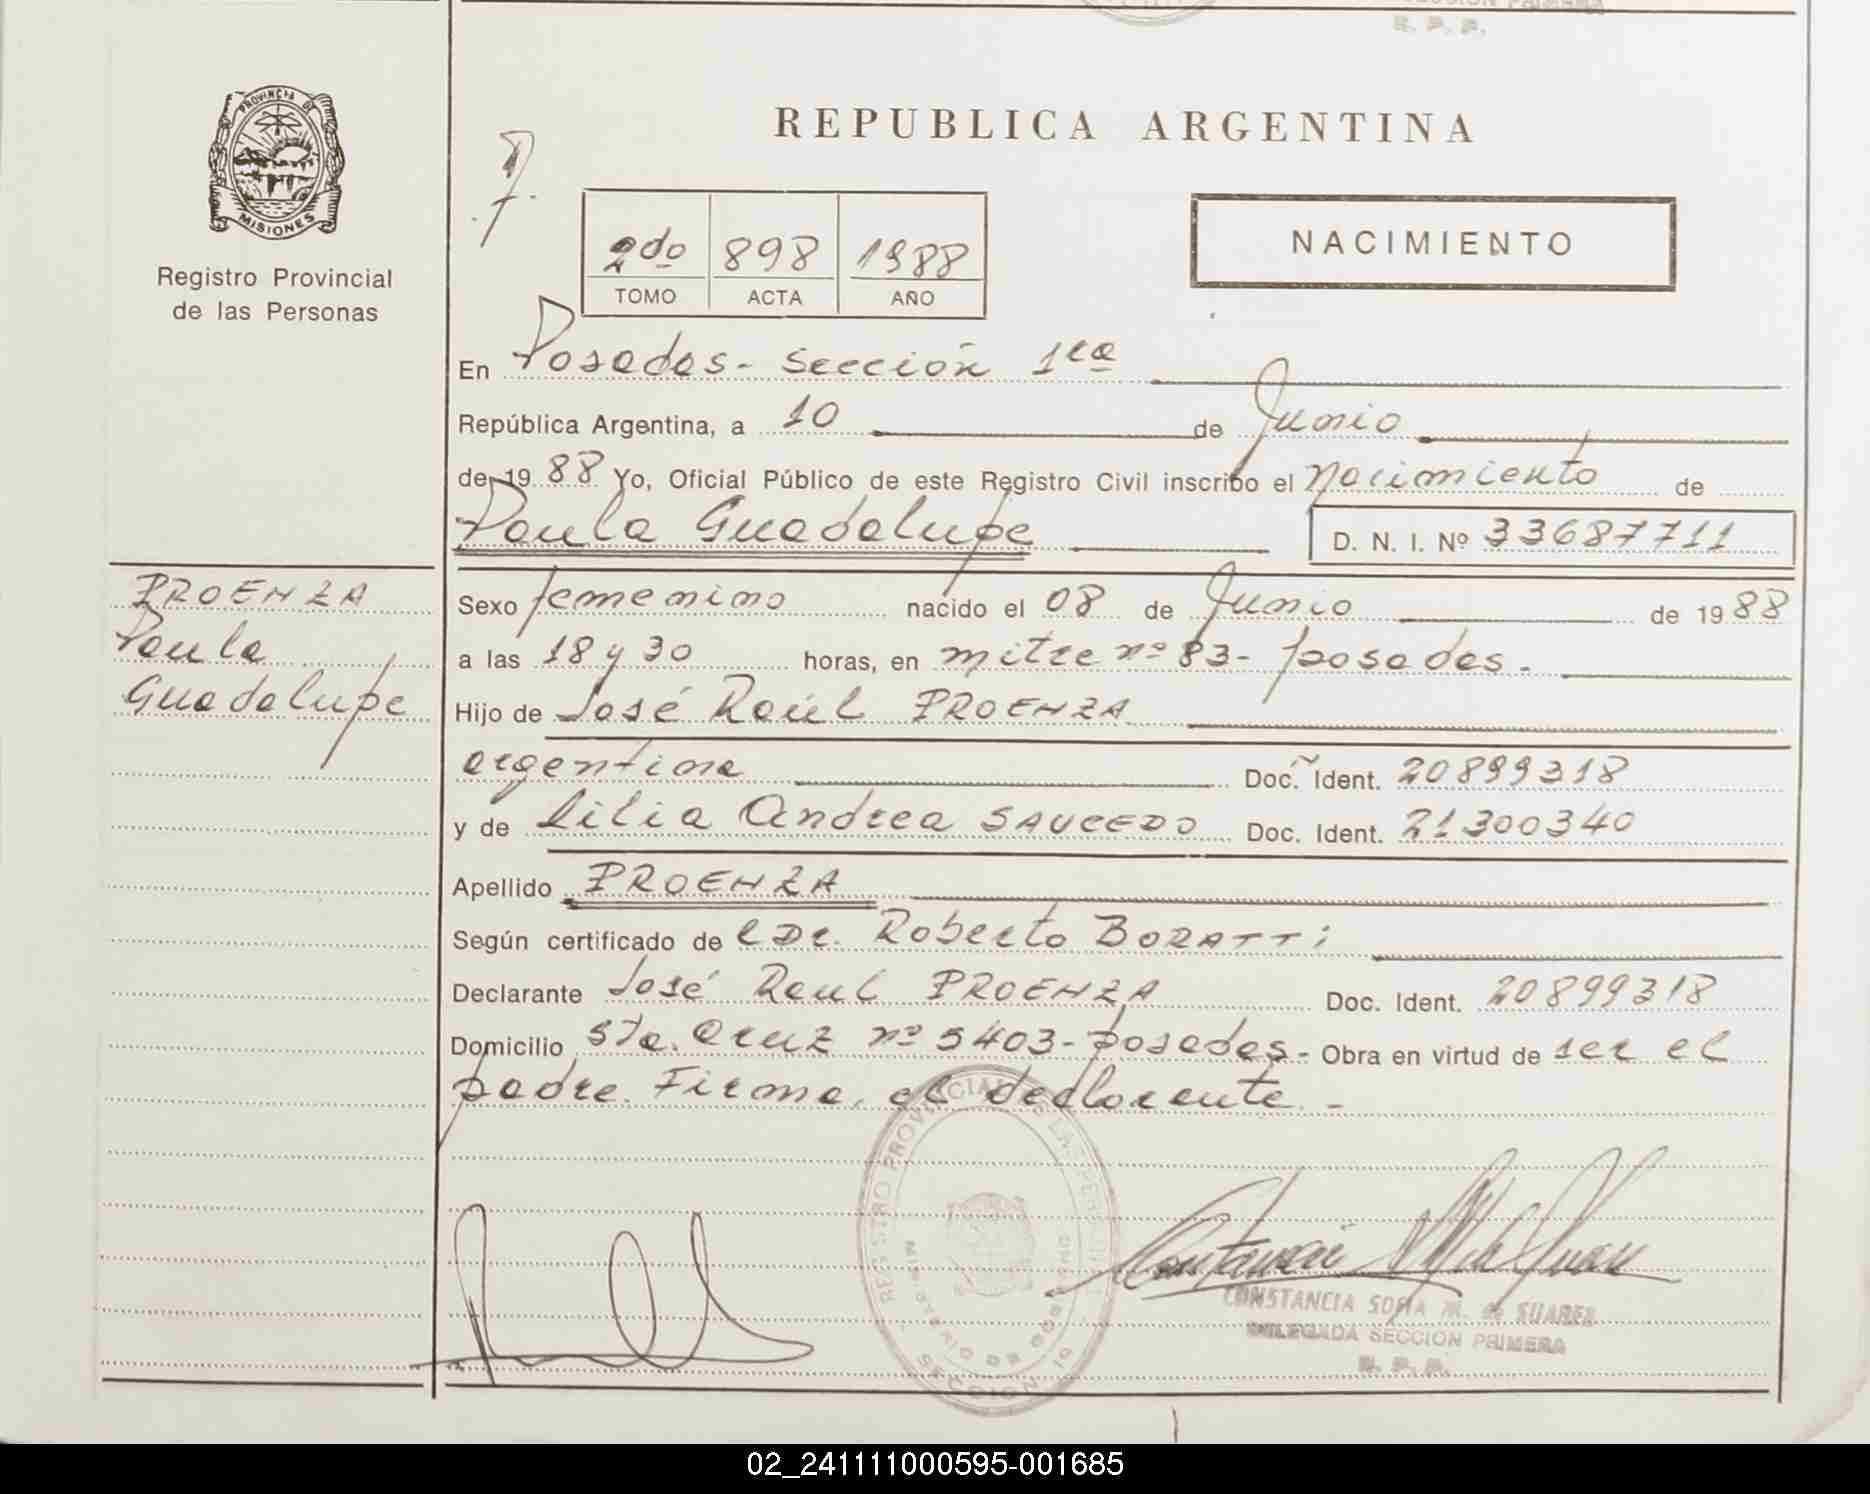 SECCION PRIMERA
R. P. P.
PROVINCIA DE
MISIONES
Registro Provincial
de las Personas
REPUBLICA ARGENTINA
2do 898 1988
TOMO ACTA AÑO
NACIMIENTO
En Posadas - Sección 1ra
República Argentina, a 10 de Junio
de 19 88 Yo, Oficial Público de este Registro Civil inscribo el nacimiento de
Paula Guadalupe D. N. I. Nº 33687711
PROENZA
Paula
Guadalupe
Sexo femenino nacido el 08 de Junio de 19 88
a las 18 y 30 horas, en mitre nº 83 - posadas.
Hijo de José Raúl PROENZA
argentina Doc. Ident. 20899318
y de Lilia Andrea SAUCEDO Doc. Ident. 21300340
Apellido PROENZA
Según certificado de l Dr. Roberto BORATTI
Declarante José Raul PROENZA Doc. Ident. 20899318
Domicilio Sta. Cruz nº 5403 - posadas - Obra en virtud de ser el
padre. Firma, el declarante. -
REGISTRO PROVINCIAL DE LAS PERSONAS
MINISTERIO DE GOBIERNO
SECCION 1
CONSTANCIA SOFIA M. de SUAREZ
DELEGADA SECCION PRIMERA
R. P. P.
02_241111000595-001685